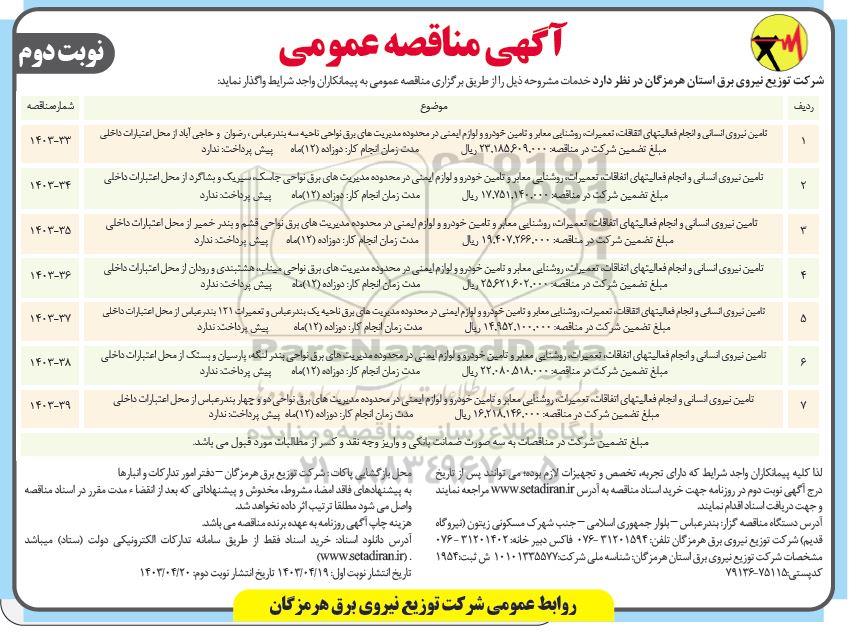 آگهی مناقصه عمومی
نوبت دوم
شرکت توزیع نیروی برق استان هرمزگان در نظر دارد خدمات مشروحه ذیل را از طریق برگزاری مناقصه عمومی به پیمانکاران واجد شرایط واگذار نماید:
ردیف موضوع شماره مناقصه
۱ تامین نیروی انسانی و انجام فعالیتهای اتفاقات، تعمیرات، روشنایی معابر و تامین خودرو و لوازم ایمنی در محدوده مدیریت های برق نواحی ناحیه سه بندرعباس، رضوان و حاجی آباد از محل اعتبارات داخلی ۱۴۰۳-۳۳
مبلغ تضمین شرکت در مناقصه: ۲۳,۱۸۵,۶۰۹,۰۰۰ ریال مدت زمان انجام کار: دوزاده (۱۲)ماه پیش پرداخت: ندارد
۲ تامین نیروی انسانی و انجام فعالیتهای اتفاقات، تعمیرات، روشنایی معابر و تامین خودرو و لوازم ایمنی در محدوده مدیریت های برق نواحی جاسک، سیریک و بشاگرد از محل اعتبارات داخلی ۱۴۰۳-۳۴
مبلغ تضمین شرکت در مناقصه: ۱۷,۷۵۱,۱۴۰,۰۰۰ ریال مدت زمان انجام کار: دوزاده (۱۲)ماه پیش پرداخت: ندارد
۳ تامین نیروی انسانی و انجام فعالیتهای اتفاقات، تعمیرات، روشنایی معابر و تامین خودرو و لوازم ایمنی در محدوده مدیریت های برق نواحی قشم و بندر خمیر از محل اعتبارات داخلی ۱۴۰۳-۳۵
مبلغ تضمین شرکت در مناقصه: ۱۹,۴۰۷,۲۶۶,۰۰۰ ریال مدت زمان انجام کار: دوزاده (۱۲)ماه پیش پرداخت: ندارد
۴ تامین نیروی انسانی و انجام فعالیتهای اتفاقات، تعمیرات، روشنایی معابر و تامین خودرو و لوازم ایمنی در محدوده مدیریت های برق نواحی میناب، هشتبندی و رودان از محل اعتبارات داخلی ۱۴۰۳-۳۶
مبلغ تضمین شرکت در مناقصه: ۲۵,۶۲۱,۶۰۲,۰۰۰ ریال مدت زمان انجام کار: دوزاده (۱۲)ماه پیش پرداخت: ندارد
۵ تامین نیروی انسانی و انجام فعالیتهای اتفاقات، تعمیرات، روشنایی معابر و تامین خودرو و لوازم ایمنی در محدوده مدیریت های برق ناحیه یک بندرعباس و تعمیرات ۱۲۱ بندرعباس از محل اعتبارات داخلی ۱۴۰۳-۳۷
مبلغ تضمین شرکت در مناقصه: ۱۴,۹۵۲,۱۰۰,۰۰۰ ریال مدت زمان انجام کار: دوزاده (۱۲)ماه پیش پرداخت: ندارد
۶ تامین نیروی انسانی و انجام فعالیتهای اتفاقات، تعمیرات، روشنایی معابر و تامین خودرو و لوازم ایمنی در محدوده مدیریت های برق نواحی بندر لنگه، پارسیان و بستک از محل اعتبارات داخلی ۱۴۰۳-۳۸
مبلغ تضمین شرکت در مناقصه: ۲۲,۰۸۰,۵۱۸,۰۰۰ ریال مدت زمان انجام کار: دوزاده (۱۲)ماه پیش پرداخت: ندارد
۷ تامین نیروی انسانی و انجام فعالیتهای اتفاقات، تعمیرات، روشنایی معابر و تامین خودرو و لوازم ایمنی در محدوده مدیریت های برق نواحی دو و چهار بندرعباس از محل اعتبارات داخلی ۱۴۰۳-۳۹
مبلغ تضمین شرکت در مناقصه: ۱۶,۲۱۸,۱۴۶,۰۰۰ ریال مدت زمان انجام کار: دوزاده (۱۲)ماه پیش پرداخت: ندارد
مبلغ تضمین شرکت در مناقصات به سه صورت ضمانت بانکی و واریز وجه نقد و کسر از مطالبات مورد قبول می باشد.
ParsNamadData
پایگاه اطلاع رسانی مناقصه و مزایده
۰۲۱-۸۸۳۴۹۶۷۰-۵
لذا کلیه پیمانکاران واجد شرایط که دارای تجربه، تخصص و تجهیزات لازم بوده؛ می توانند پس از تاریخ
درج آگهی نوبت دوم در روزنامه جهت خرید اسناد مناقصه به آدرس www.setadiran.ir مراجعه نمایند
و جهت دریافت اسناد اقدام نمایند.
آدرس دستگاه مناقصه گزار: بندرعباس – بلوار جمهوری اسلامی – جنب شهرک مسکونی زیتون (نیروگاه
قدیم) شرکت توزیع نیروی برق هرمزگان تلفن: ۳۱۲۰۱۵۹۴-۰۷۶ فاکس دبیر خانه: ۳۱۲۰۱۴۰۲-۰۷۶
مشخصات شرکت توزیع نیروی برق استان هرمزگان: شناسه ملی شرکت: ۱۰۱۰۱۳۳۵۵۷۷ ش ثبت: ۱۹۵۴
کدپستی: ۷۵۱۱۵-۷۹۱۳۶
محل بازگشایی پاکات: شرکت توزیع برق هرمزگان – دفتر امور تدارکات و انبارها
به پیشنهادهای فاقد امضا، مشروط، مخدوش و پیشنهاداتی که بعد از انقضاء مدت مقرر در اسناد مناقصه
واصل می شود مطلقا ترتیب اثر داده نخواهد شد.
هزینه چاپ آگهی روزنامه به عهده برنده مناقصه می باشد.
آدرس دانلود اسناد: خرید اسناد فقط از طریق سامانه تدارکات الکترونیکی دولت (ستاد) میباشد
. (www.setadiran.ir)
تاریخ انتشار نوبت اول: ۱۴۰۳/۰۴/۱۹ تاریخ انتشار نوبت دوم: ۱۴۰۳/۰۴/۲۰
روابط عمومی شرکت توزیع نیروی برق هرمزگان